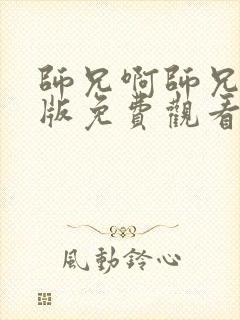 師兄啊師兄
版免費觀看
風動鈴心